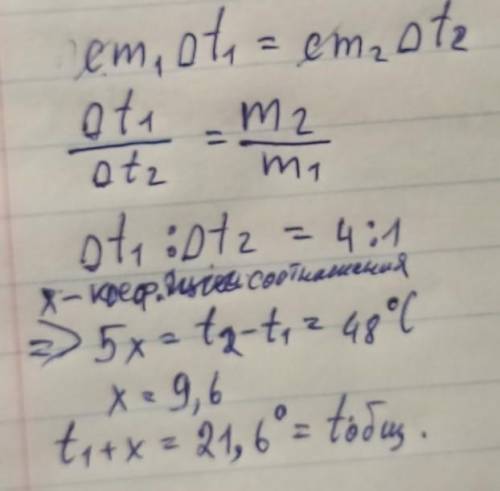 cm₁Δt₁ = cm₂Δt₂
Δt₁/Δt₂ = m₂/m₁
Δt₁ : Δt₂ = 4:1
x – коеф. соотнашения
=> 5x = t₂ - t₁ = 48°C
x = 9,6
t₁ + x = 21,6° = tобщ.